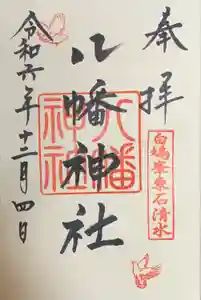 奉拝
八幡神社
八幡神社
白鳩峯東石清水
令和六年十二月四日